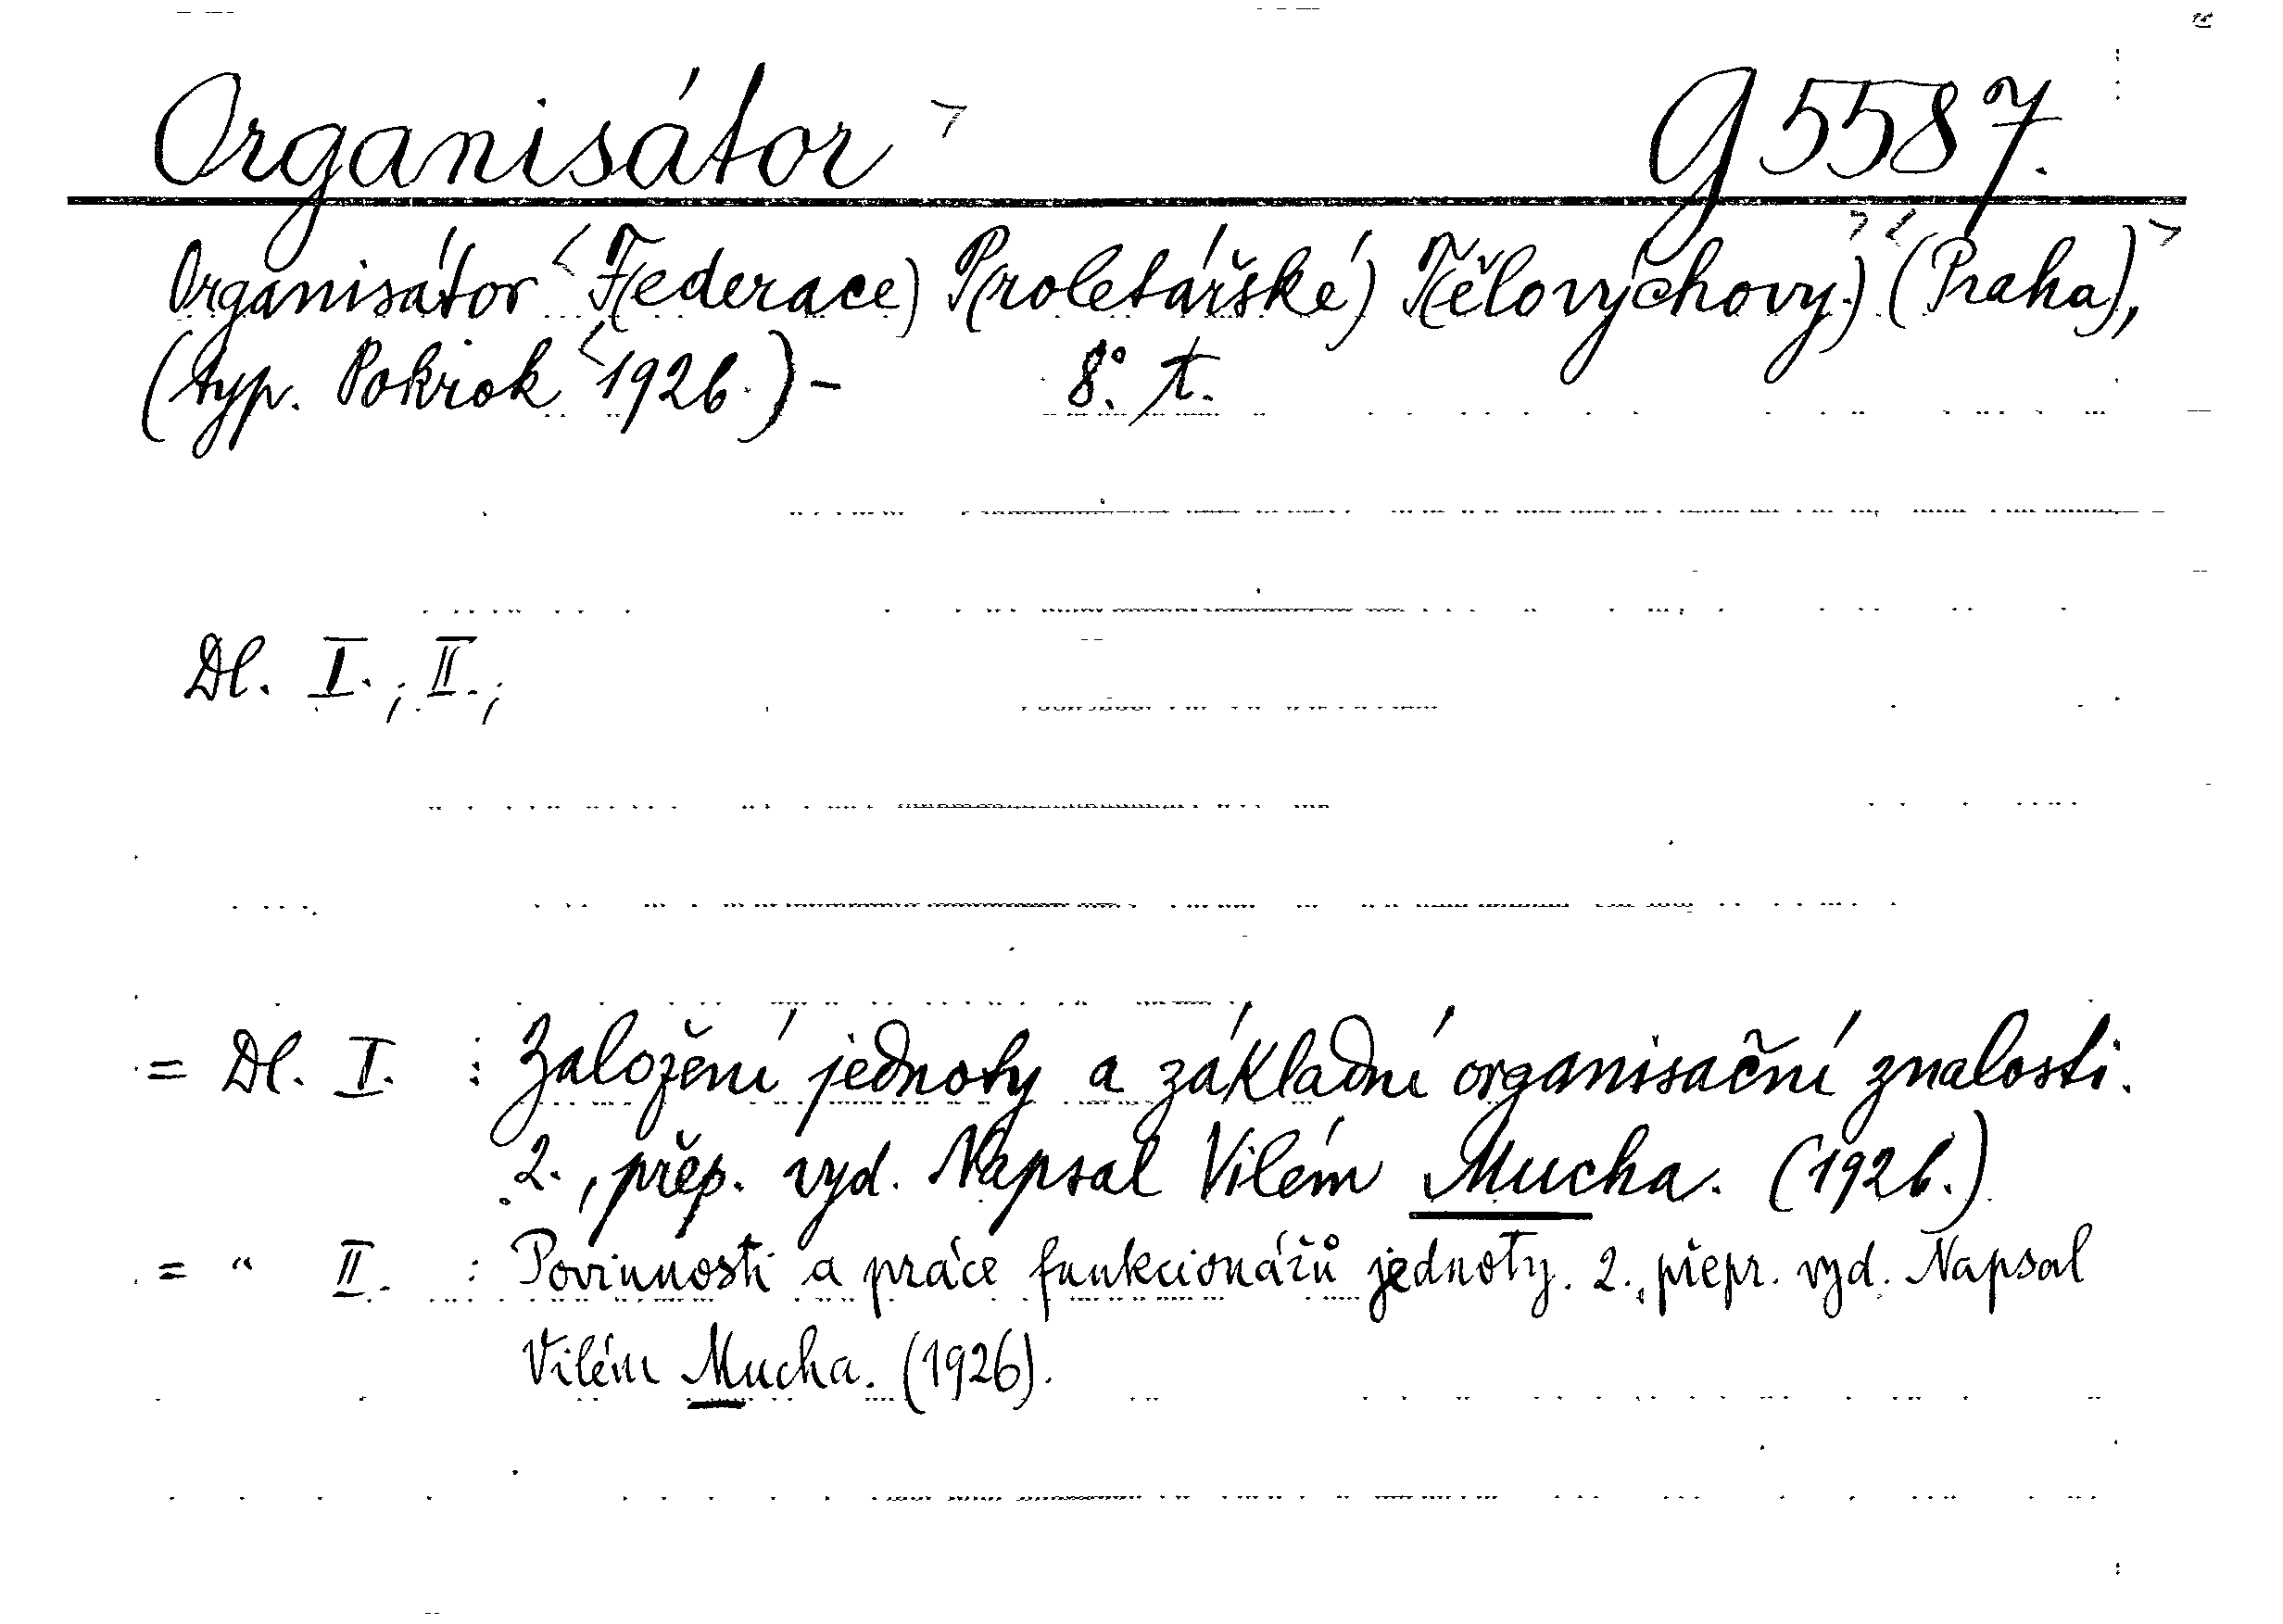 Organisátor G 5587.
Organisátor F(ederace) P(roletářské) T(ělovýchovy.) (Praha),
(typ. Pokrok 1926.) – 8°. t.
Dl. I.; II.;
= Dl. I. : Založení jednoty a základní organisační znalosti.
2., přep. vyd. Napsal Vilém Mucha. (1926.)
= " II. : Povinnosti a práce funkcionářů jednoty. 2., přepr. vyd. Napsal
Vilém Mucha. (1926).